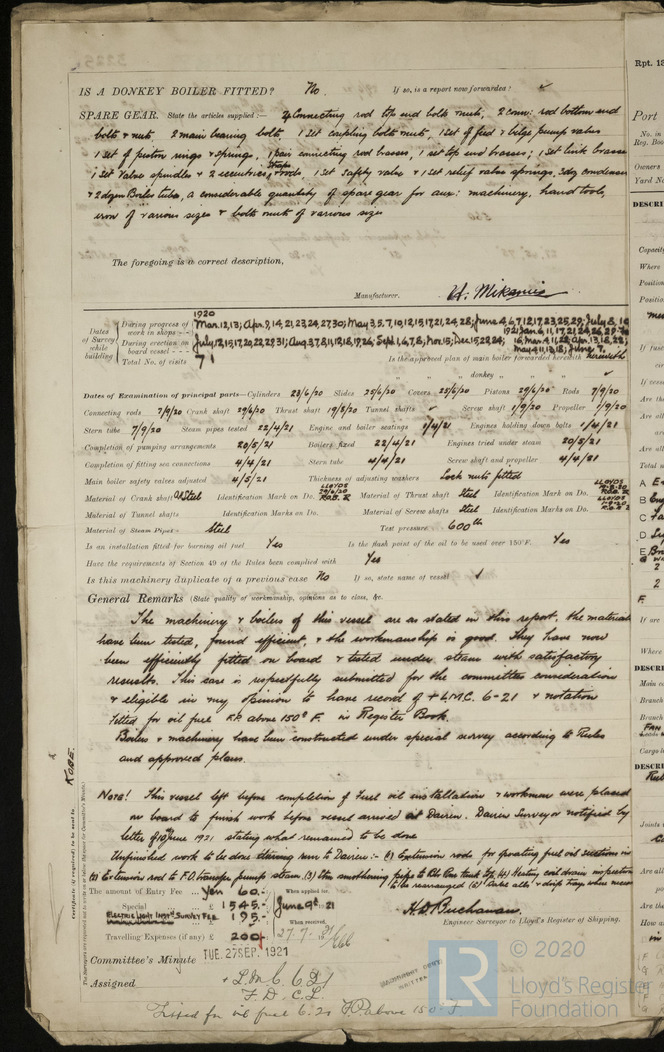 IS A DONKEY BOILER FITTED? No. If so, is a report now forwarded?
SPARE GEAR. State the articles supplied:— 4 Connecting rod top end bolts nuts, 2 Conn: rod bottom end
bolts & nuts 2 main bearing bolts, 1 Set coupling bolts nuts, 1 Set of feed & bilge pump valves
1 Set of piston rings & springs, 1 pair connecting rod brasses, 1 set top end brasses, 1 Set link brasses
1 Set Valve spindles & 2 eccentrics, Straps & rods, 1 Set Safety valve & 1 set relief valve springs, 3 dz condenser
& 2 dozen Boiler tubes, a considerable quantity of spare gear for aux: machinery, hand tools,
iron of various sizes & bolts nuts of various sizes
The foregoing is a correct description,
Manufacturer.
1920
Dates of Survey while building
During progress of work in shops - - Mar. 12, 13; Apr. 9, 14, 21, 23, 24, 27, 30; May 3, 5, 7, 10, 12, 15, 17, 21, 24, 28; June 4, 6, 7, 12, 17, 23, 25, 29; July 8, 10
During erection on board vessel - - - July, 12, 15, 17, 20, 22, 29, 31; Aug. 3, 7, 8, 11, 12, 18, 19, 26; Sept. 1, 6, 7, 8; Nov. 15; Dec. 15, 22, 24;
1921
Total No. of visits 71 Is the approved plan of main boiler forwarded herewith
" " " donkey " " "
Dates of Examination of principal parts—Cylinders 23/6/20 Slides 25/6/20 Covers 25/6/20 Pistons 29/6/20 Rods 7/9/20
Connecting rods 7/9/20 Crank shaft 29/6/20 Thrust shaft 19/8/20 Tunnel shafts Screw shaft 1/9/20 Propeller 1/9/20
Stern tube 7/9/20 Steam pipes tested 22/4/21 Engine and boiler seatings Engines holding down bolts
Completion of pumping arrangements 20/5/21 Boilers fixed 22/4/21 Engines tried under steam 20/5/21
Completion of fitting sea connections 4/4/21 Stern tube 4/4/21 Screw shaft and propeller 4/4/21
Main boiler safety valves adjusted 4/5/21 Thickness of adjusting washers Lock nuts fitted
Material of Crank shaft Steel Identification Mark on Do. Material of Thrust shaft Steel Identification Mark on Do.
Material of Tunnel shafts Identification Marks on Do. Material of Screw shafts Steel Identification Marks on Do.
Material of Steam Pipes - Steel Test pressure 600 lb
Is an installation fitted for burning oil fuel Yes Is the flash point of the oil to be used over 150°F. Yes
Have the requirements of Section 49 of the Rules been complied with Yes
Is this machinery duplicate of a previous case No If so, state name of vessel
General Remarks (State quality of workmanship, opinions as to class, &c.
The machinery & boilers of this vessel are as stated in this report, the materials
have been tested, found efficient, & the workmanship is good. They have now
been efficiently fitted on board & tested under steam with satisfactory
results. This case is respectfully submitted for the committees consideration
& eligible in my opinion to have record of + L.M.C. 6-21 & notation
fitted for oil fuel F.P. above 150° F. in Register Book.
Boilers & machinery have been constructed under special survey according to Rules
and approved plans.
NOTE! This vessel left before completion of Fuel oil installation & workmen were placed
on board to finish work before vessel arrived at Dairen. Dairen Surveyor notified by
letter of 10 June 1921 stating what remained to be done
Unfinished work to be done during run to Dairen:- (1) Extension rods for operating fuel oil suctions in
(2) Extension rod to F.O. transfer pump steam
The amount of Entry Fee Yen 60.- When applied for,
Special £ 1545.- June 9th 21
ELECTRIC LIGHT INSTN SURVEY FEE 195.- When received,
Travelling Expenses (if any) £ 200 27.7.
H.D. Buchanan
Engineer Surveyor to Lloyd's Register of Shipping.
Committee's Minute TUE. 27 SEP. 1921
Assigned + L.M.C. 6.21
F.D. C.L.
Fitted for oil fuel 6.21 F.P. above 150° F.
KOBE
Rpt. 13
Port
No. in
Reg. Book
Owners
Yard No.
© 2020
LR
Lloyd's Register
Foundation